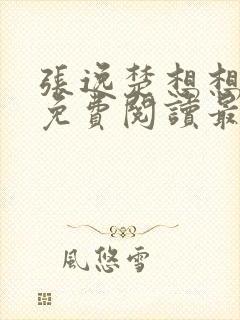 張逸楚想想
免費閱讀最
風悠雪